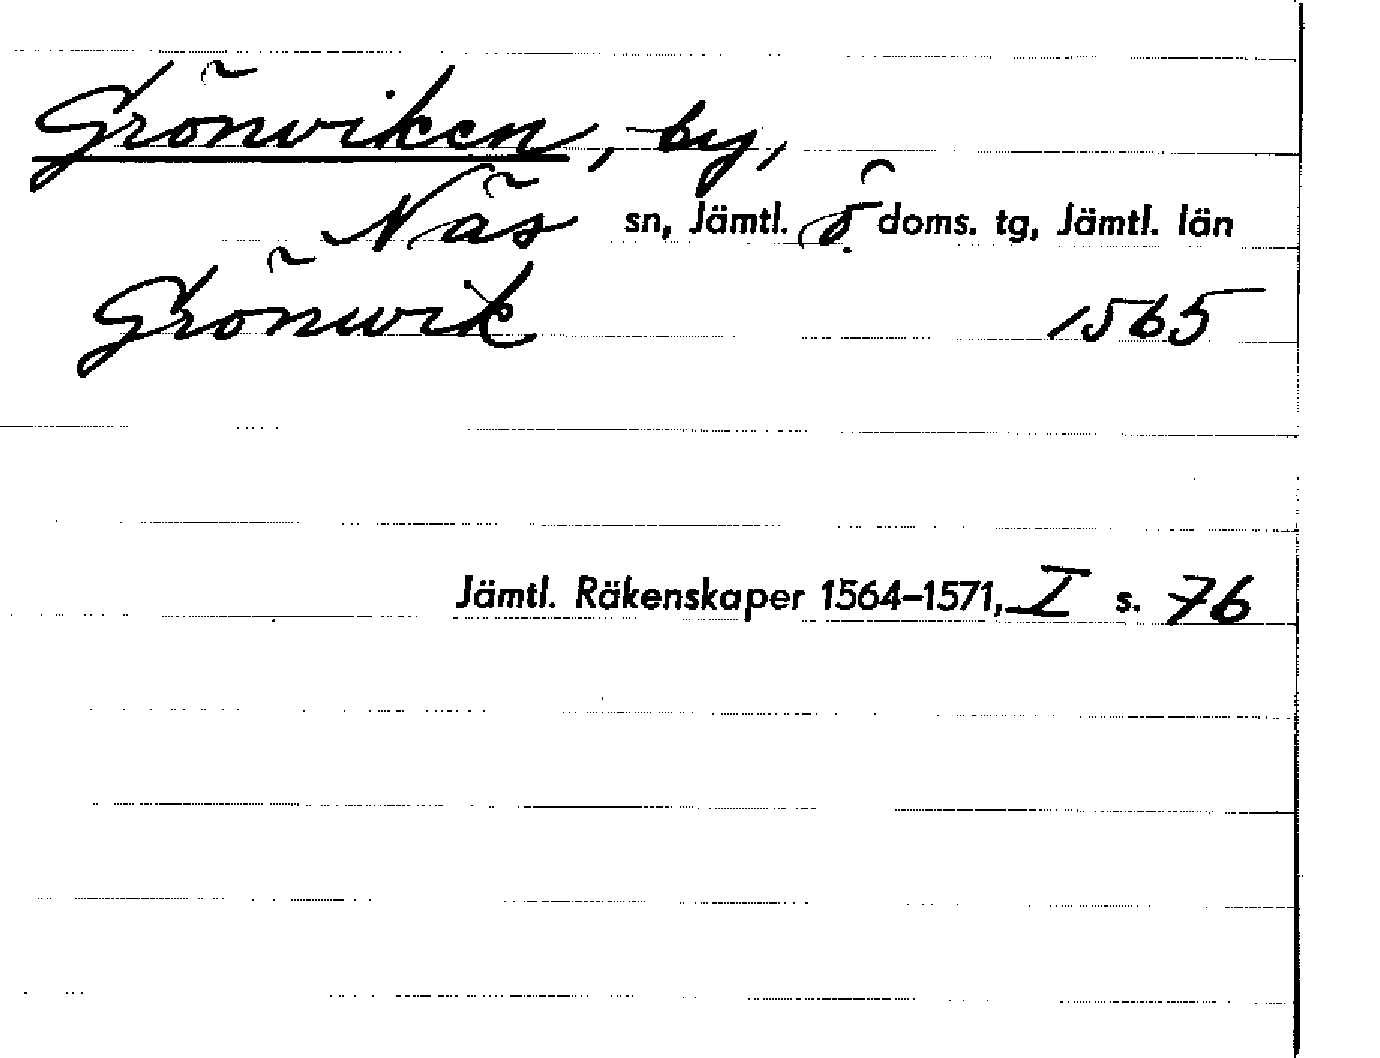 Grönviken, by,
Näs sn, Jämtl. ö. doms. tg, Jämtl. län
Grönwik 1565
Jämtl. Räkenskaper 1564-1571, I s. 76